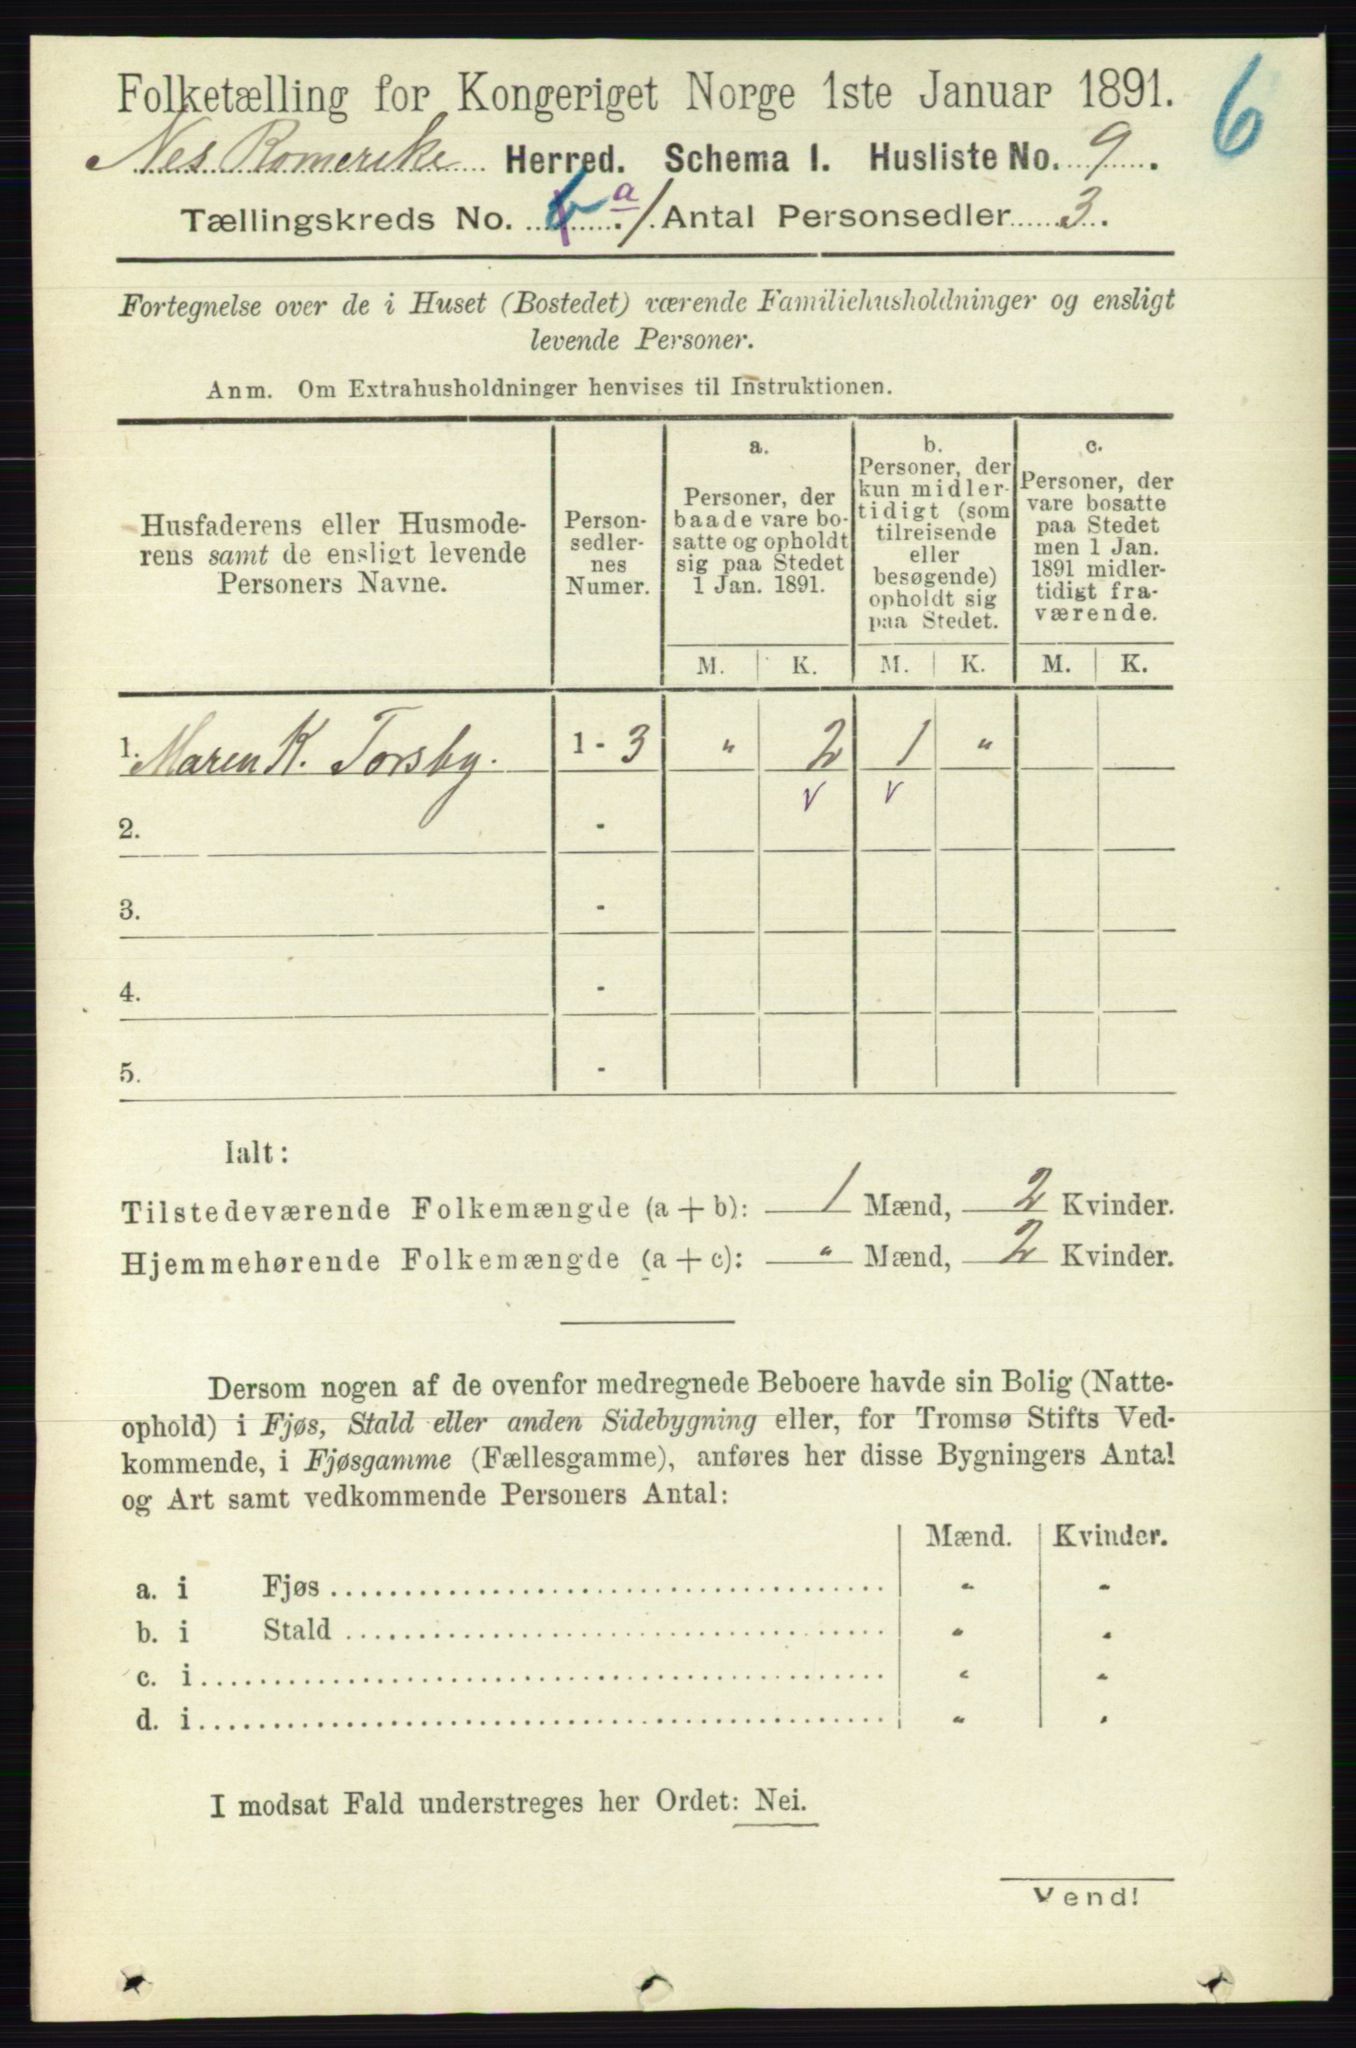 Folketælling for Kongeriget Norge 1ste Januar 1891.
6
Nes Romerike Herred. Schema I. Husliste No. 9.
Tællingskreds No. 6 a. / Antal Personsedler 3.
Fortegnelse over de i Huset (Bostedet) værende Familiehusholdninger og ensligt
levende Personer.
Anm. Om Extrahusholdninger henvises til Instruktionen.
Husfaderens eller Husmode-
rens samt de ensligt levende
Personers Navne.
Person-
sedler-
nes
Numer.
a.
Personer, der
baade vare bo-
satte og opholdt
sig paa Stedet
1 Jan. 1891.
b.
Personer, der
kun midler-
tidigt (som
tilreisende
eller
besøgende)
opholdt sig
paa Stedet.
c.
Personer, der
vare bosatte
paa Stedet
men 1 Jan.
1891 midler-
tidigt fra-
værende.
M. K. M. K. M. K.
1. Maren K. Torsby. 1 - 3 " 2 1 "
v v
2. -
3. -
4. -
5. -
Ialt:
Tilstedeværende Folkemængde (a + b): 1 Mænd, 2 Kvinder.
Hjemmehørende Folkemængde (a + c): " Mænd, 2 Kvinder.
Dersom nogen af de ovenfor medregnede Beboere havde sin Bolig (Natte-
ophold) i Fjøs, Stald eller anden Sidebygning eller, for Tromsø Stifts Ved-
kommende, i Fjøsgamme (Fællesgamme), anføres her disse Bygningers Antal
og Art samt vedkommende Personers Antal:
Mænd. Kvinder.
a. i Fjøs " "
b. i Stald " "
c. i " "
d. i " "
I modsat Fald understreges her Ordet: Nei.
Vend!